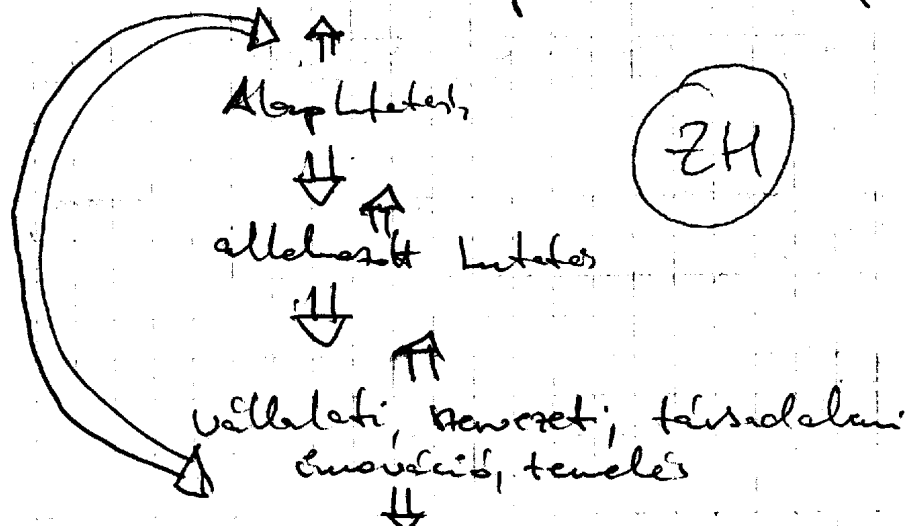 Alapkutatás
ZH
alkalmazott kutatás
vállalati, szervezeti, társadalmi
innováció, termelés